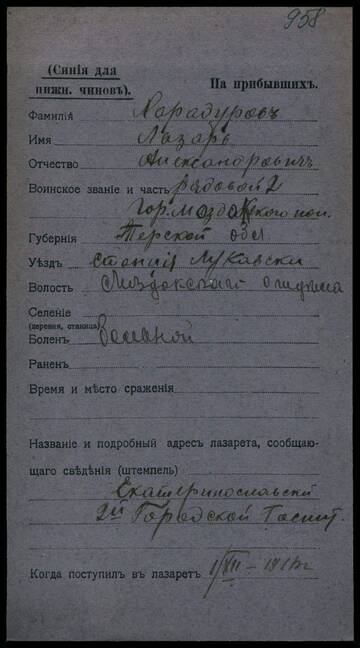 958
(Синія для
нижн. чиновъ).
На прибывшихъ.
Фамилія Хорадуровъ
Имя Лазарь
Отчество Александровичъ
Воинское званіе и часть рядовой 2
Гор. Моздокского пол.
Губернія Терской обл
Уѣздъ станція Луковски
Волость Моздокскаго отдѣла
Селеніе
(деревня, станица)
Боленъ Больной
Раненъ
Время и мѣсто сраженія
Названіе и подробный адресъ лазарета, сообщаю-
щаго свѣдѣнія (штемпель)
Екатеринославскій
2й Городской Госпит.
Когда поступилъ въ лазаретъ 1/VII - 1917г